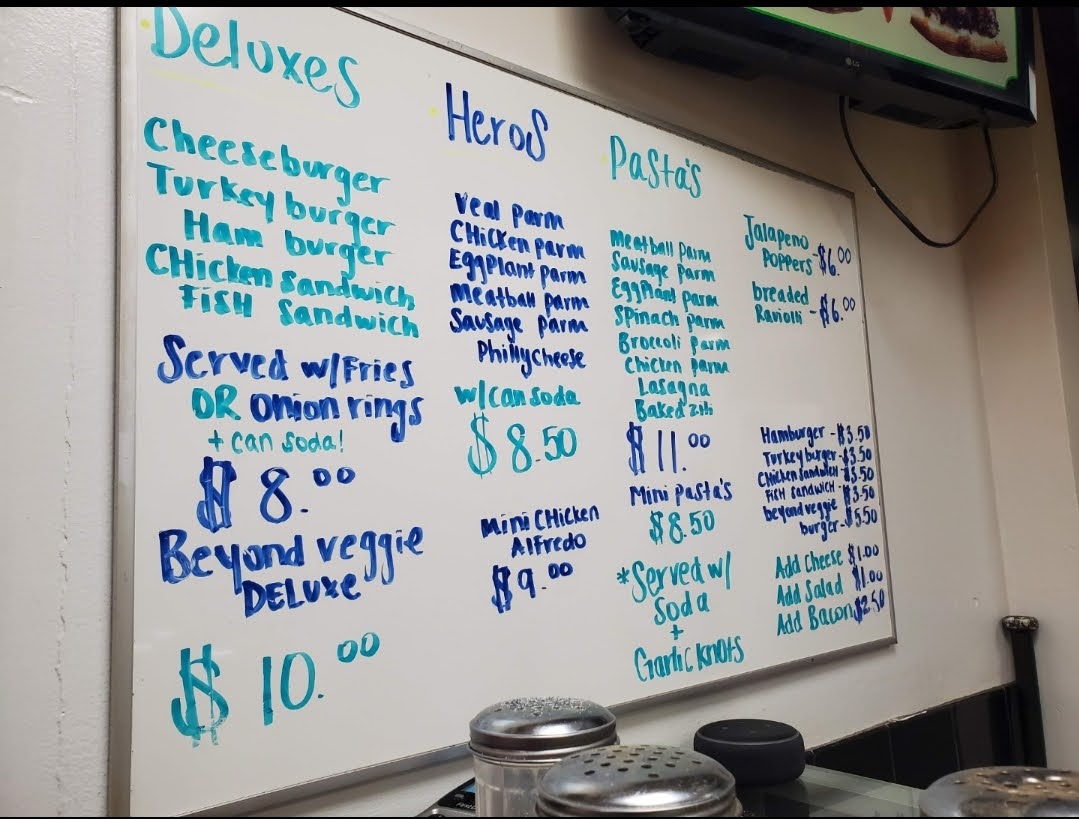 Deluxes
Cheeseburger
Turkey burger
Ham burger
CHicken Sandwich
FiSH Sandwich
Served w/Fries
OR Onion rings
+ can soda!
$8.00
Beyond veggie
DELUXE
$10.00
HeroS
Veal Parm
CHiCKen parm
EggPlant parm
Meatball parm
Sausage parm
Phillycheese
w/can soda
$8.50
Mini CHicken
Alfredo
$9.00
PaSta's
Meatball Parm
Sausage parm
EggPlant parm
Spinach parm
Broccoli parm
Chicken parm
Lasagna
Baked ziti
$11.00
Mini pasta's
$8.50
*Served w/
Soda
+
Garlic knots
Jalapeno
POPPers -$6.00
breaded
Raviolli -$6.00
Hamburger -$3.50
Turkey burger -$3.50
CHicken Sandwich -$3.50
FiSH SandwicH -$3.50
beyond veggie
burger -$5.50
Add Cheese $1.00
Add Salad $1.00
Add Bacon $2.50
LG